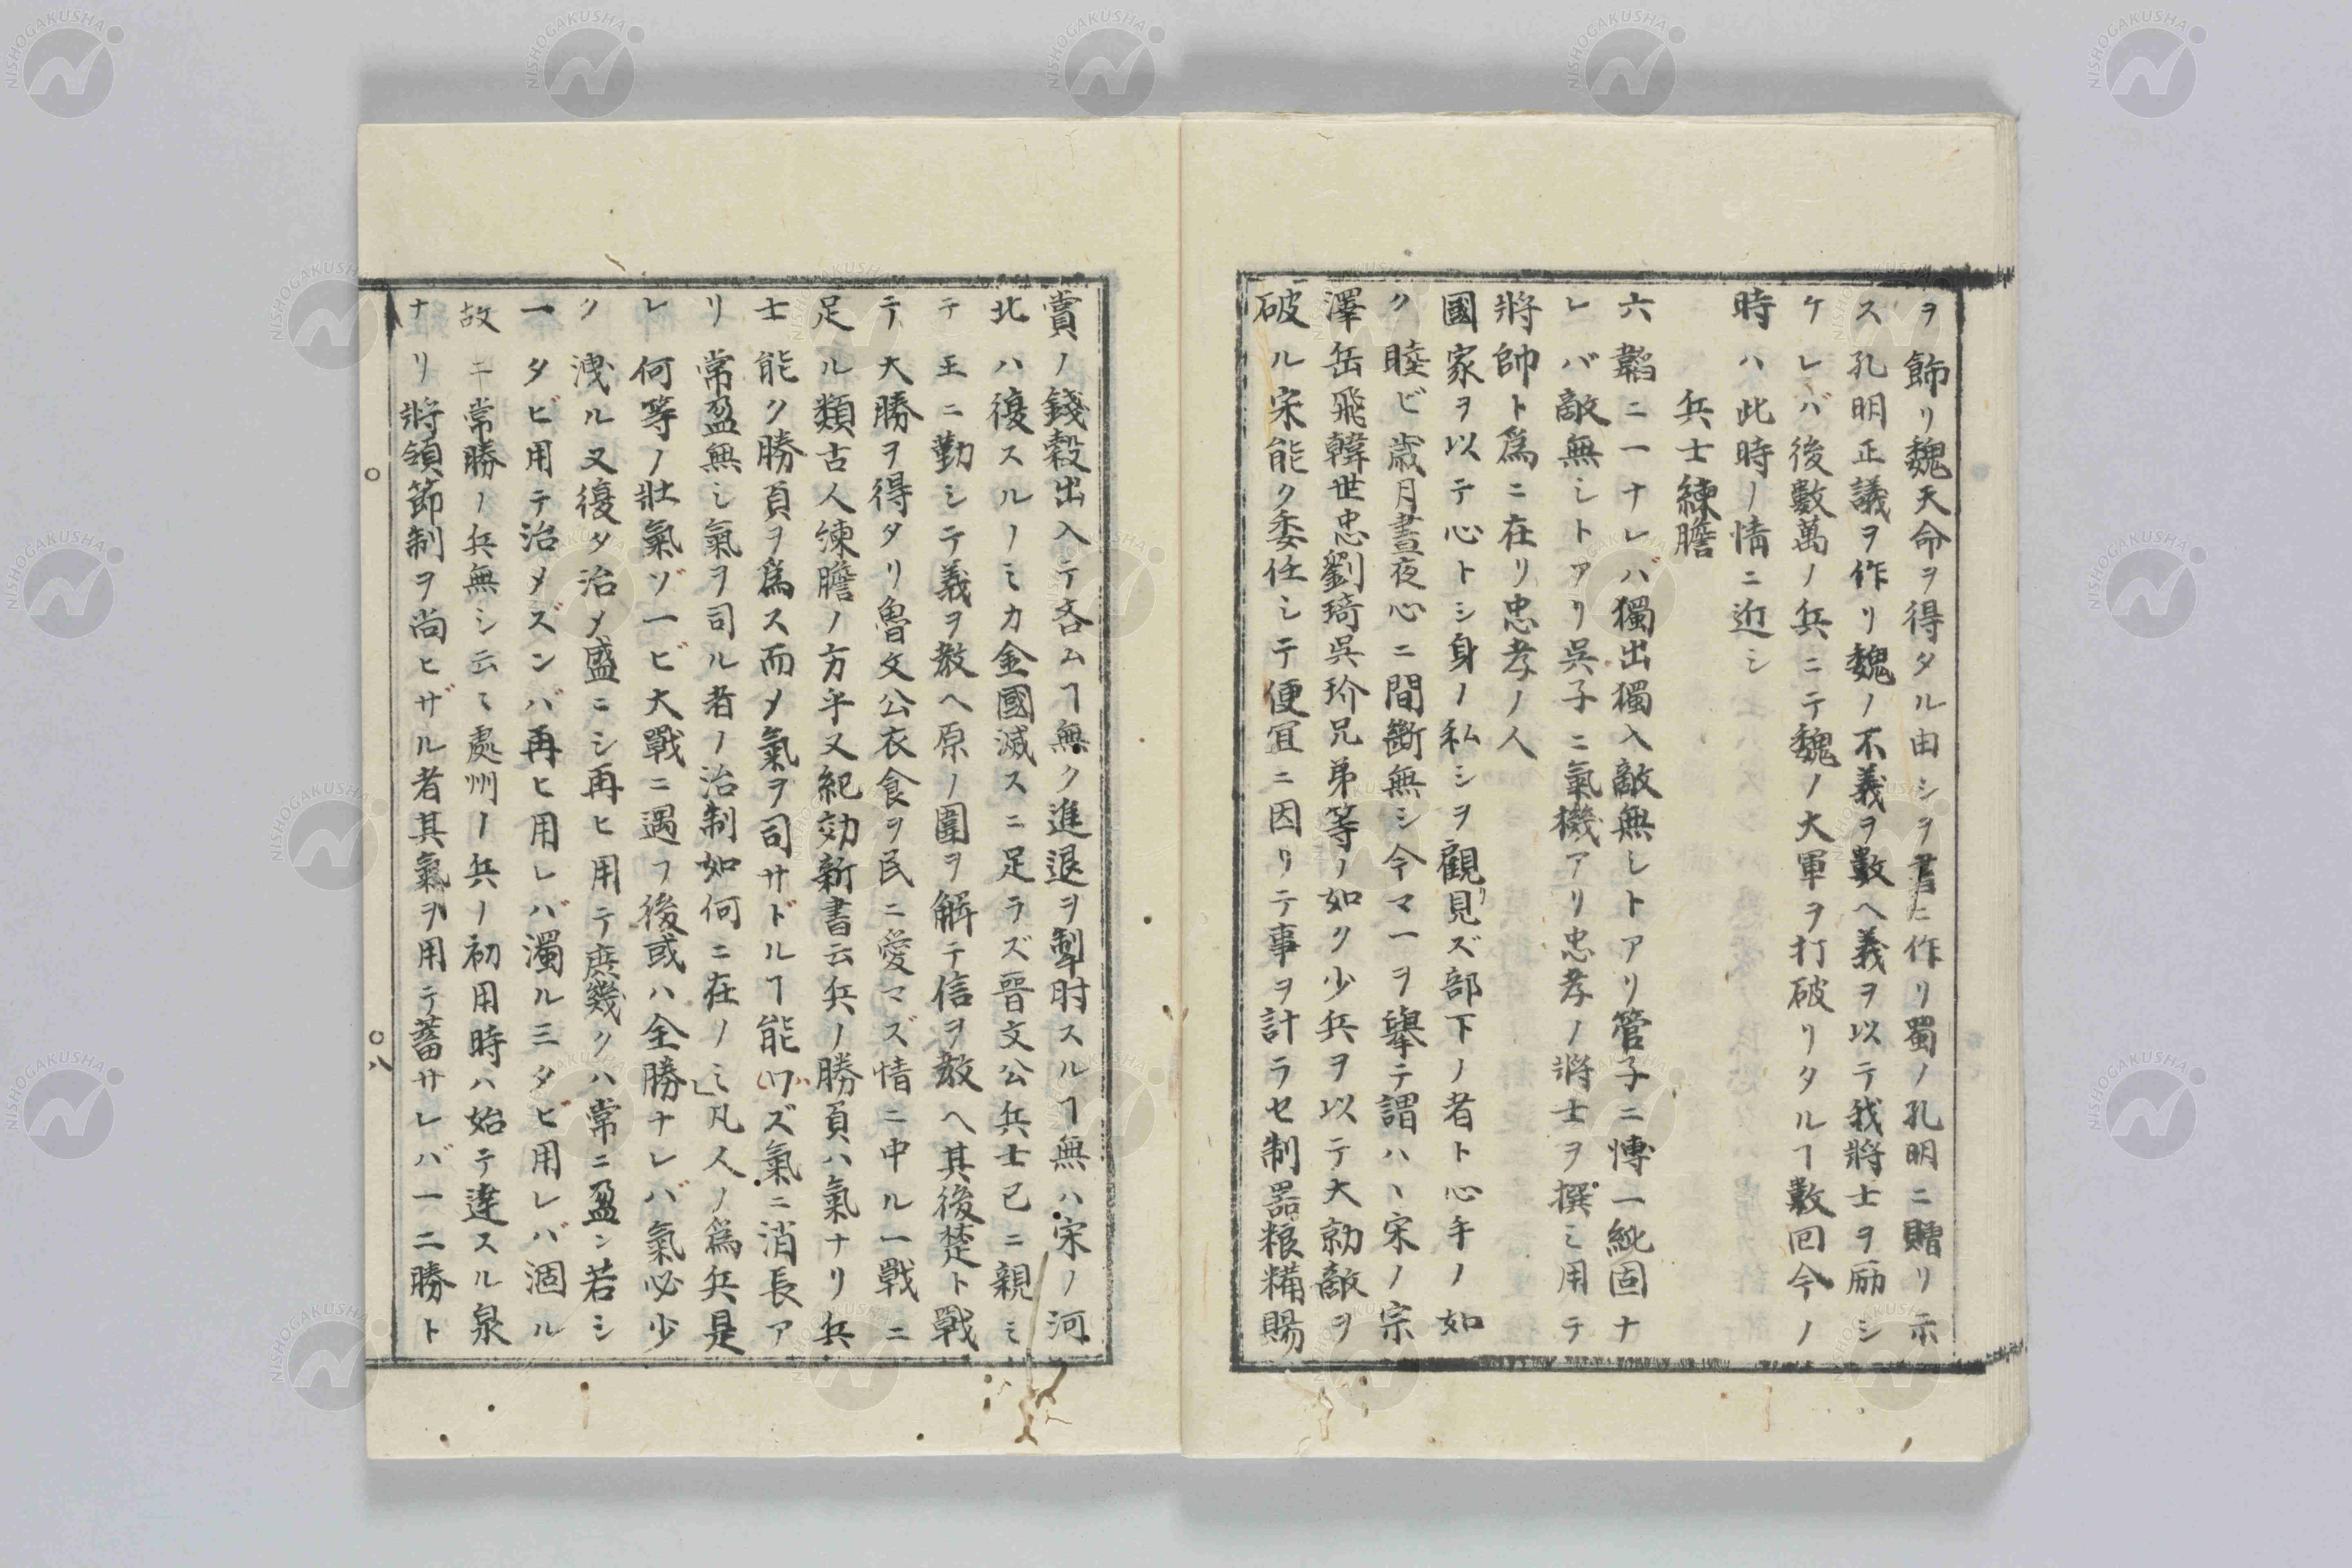 ヲ飾リ魏天命ヲ得タル由シヲ書ニ作リ蜀ノ孔明ニ贈リ示
ス孔明正議ヲ作リ魏ノ不義ヲ數ヘ義ヲ以テ我將士ヲ励シ
ケレバ後數萬ノ兵ニテ魏ノ大軍ヲ打破リタルヿ數回今ノ
時ハ此時ノ情ニ近シ
兵士練膽
六韜ニ一ナレバ獨出獨入敵無シトアリ管子ニ愽一純固ナ
レバ敵無シトアリ呉子ニ氣機アリ忠孝ノ將士ヲ撰ミ用テ
將帥ト爲ニ在リ忠孝ノ人
國家ヲ以テ心トシ身ノ私シヲ觀見リズ部下ノ者ト心手ノ如
ク睦ビ歳月晝夜心ニ間斷無シ今マ一ヲ擧テ謂ハヽ宋ノ宗
澤岳飛韓世忠劉琦呉玠兄弟等ノ如ク少兵ヲ以テ大勍敵ヲ
破ル宋能ク委任シテ便冝ニ因リテ事ヲ計ラセ制器粮糒賜
賞ノ錢穀出入テ吝ムヿ無ク進退ヲ掣肘スルヿ無ハ宋ノ河
北ハ復スルノミカ金國滅スニ足ラズ晉文公兵士已ニ親ミ
テ王ニ勤シテ義ヲ教ヘ原ノ圍ヲ解テ信ヲ教ヘ其後楚ト戰
テ大勝ヲ得タリ魯文公衣食ヲ民ニ愛マズ情ニ中ル一戰ニ
足ル類古人練膽ノ方乎又紀効新書云兵ノ勝負ハ氣ナリ兵
士能ク勝負ヲ爲ス而メ氣ヲ司サドルヿ能ワズ氣ニ消長ア
リ常盈無シ氣ヲ司ル者ノ治制如何ニ在ノミ凡人ノ爲兵是
レ何等ノ壯氣ゾ一ビ大戰ニ遇フ後或ハ全勝ナレバ氣必少
ク洩ル又復タ治メ盛ニシ再ヒ用テ庶幾クハ常ニ盈ン若シ
一タビ用テ治メズンバ再ヒ用レバ濁ル三タビ用レバ涸ル
故ニ常勝ノ兵無シ云々處州ノ兵ノ初用時ハ始テ達スル泉
ナリ將領節制ヲ尚ヒザル者其氣ヲ用テ蓄サレバ一二勝ト
○
○八
NISHOGAKUSHA